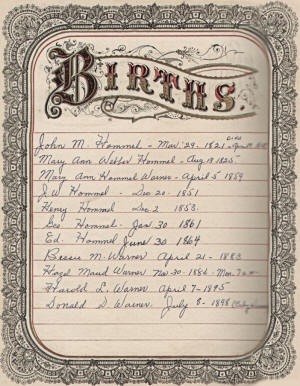 BIRTHS.
John M. Hommel - Mar. 29. 1821 - Died
Mary Ann Webber Hommel - Aug 19 1825
Mary Ann Hommel Warner - April 5 1859
J. W. Hommel - Dec 20 - 1851
Henry Hommel Dec. 2 1853.
Geo Hommel - Jan 30 1861
Ed. Hommel June 30 1864
Bessie M. Warner April 21 - 1883
Hazel Maud Warner Nov. 30 - 1886 -
Harold L. Warner April 7 - 1895
Donald D Warner. July 8 - 1898